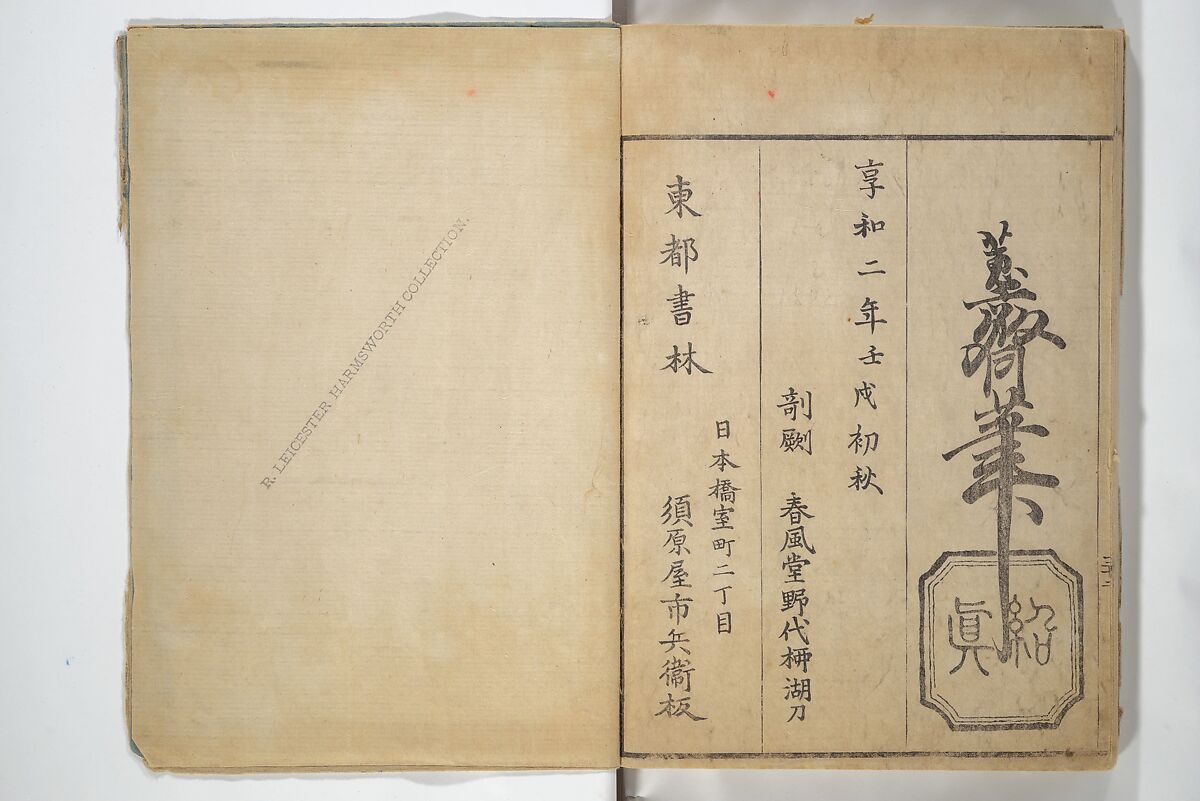 蕙齋筆
紹眞
享和二年壬戌初秋
剞劂 春風堂野代柳湖刀
日本橋室町二丁目
東都書林 須原屋市兵衞板
R. LEICESTER HARMSWORTH COLLECTION.